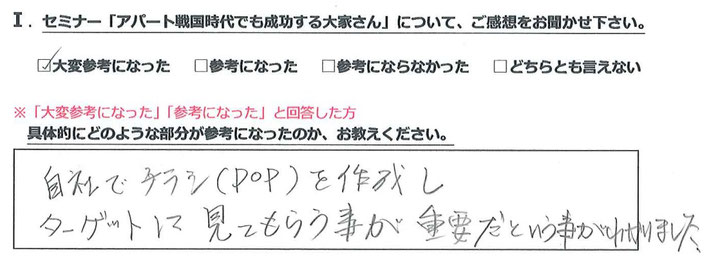 I．セミナー「アパート戦国時代でも成功する大家さん」について、ご感想をお聞かせ下さい。
☑大変参考になった □参考になった □参考にならなかった □どちらとも言えない
※「大変参考になった」「参考になった」と回答した方
具体的にどのような部分が参考になったのか、お教えください。
自社でチラシ(POP)を作成し
ターゲットに見てもらう事が重要だという事がわかりました。